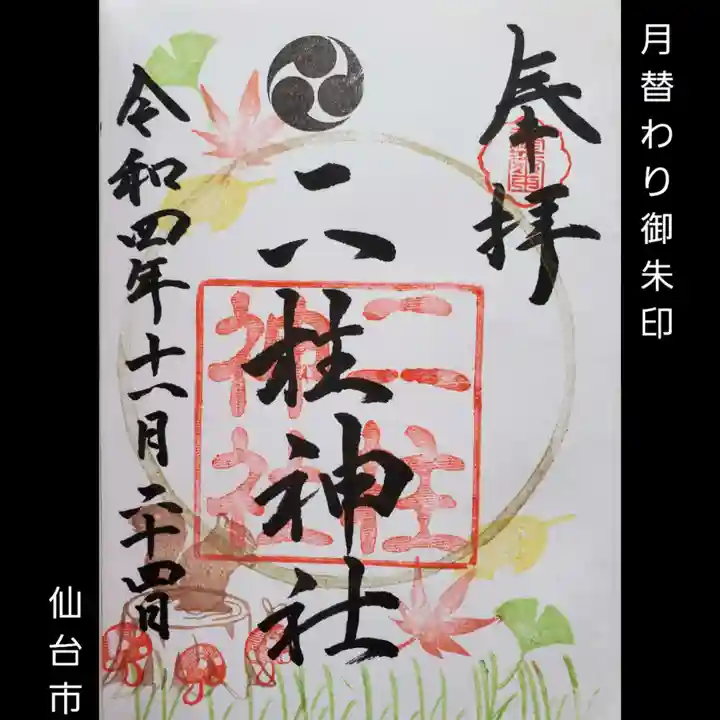 月替わり御朱印
奉拝
二柱神社
二柱
神社
令和四年十一月二十四日
仙台市